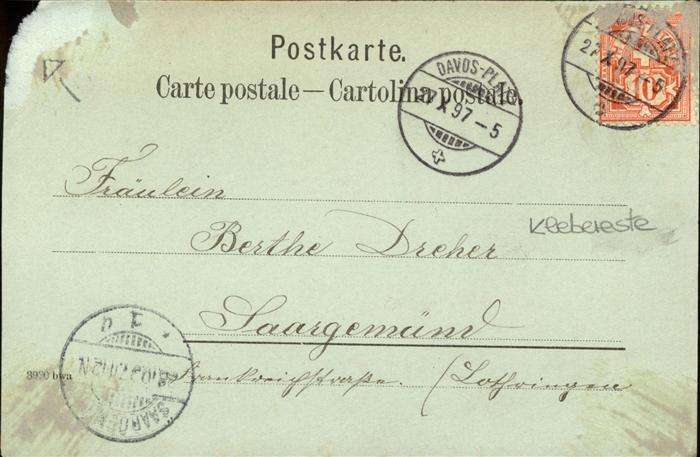 Postkarte.
Carte postale — Cartolina postale.
DAVOS-PLATZ
27.X.97-5
27.X.97
10
Fräulein
Berthe Dreher
Klebereste
Saargemünd
Frankreichstraße. (Lothringen
3990 bwa
SAARGEMÜND